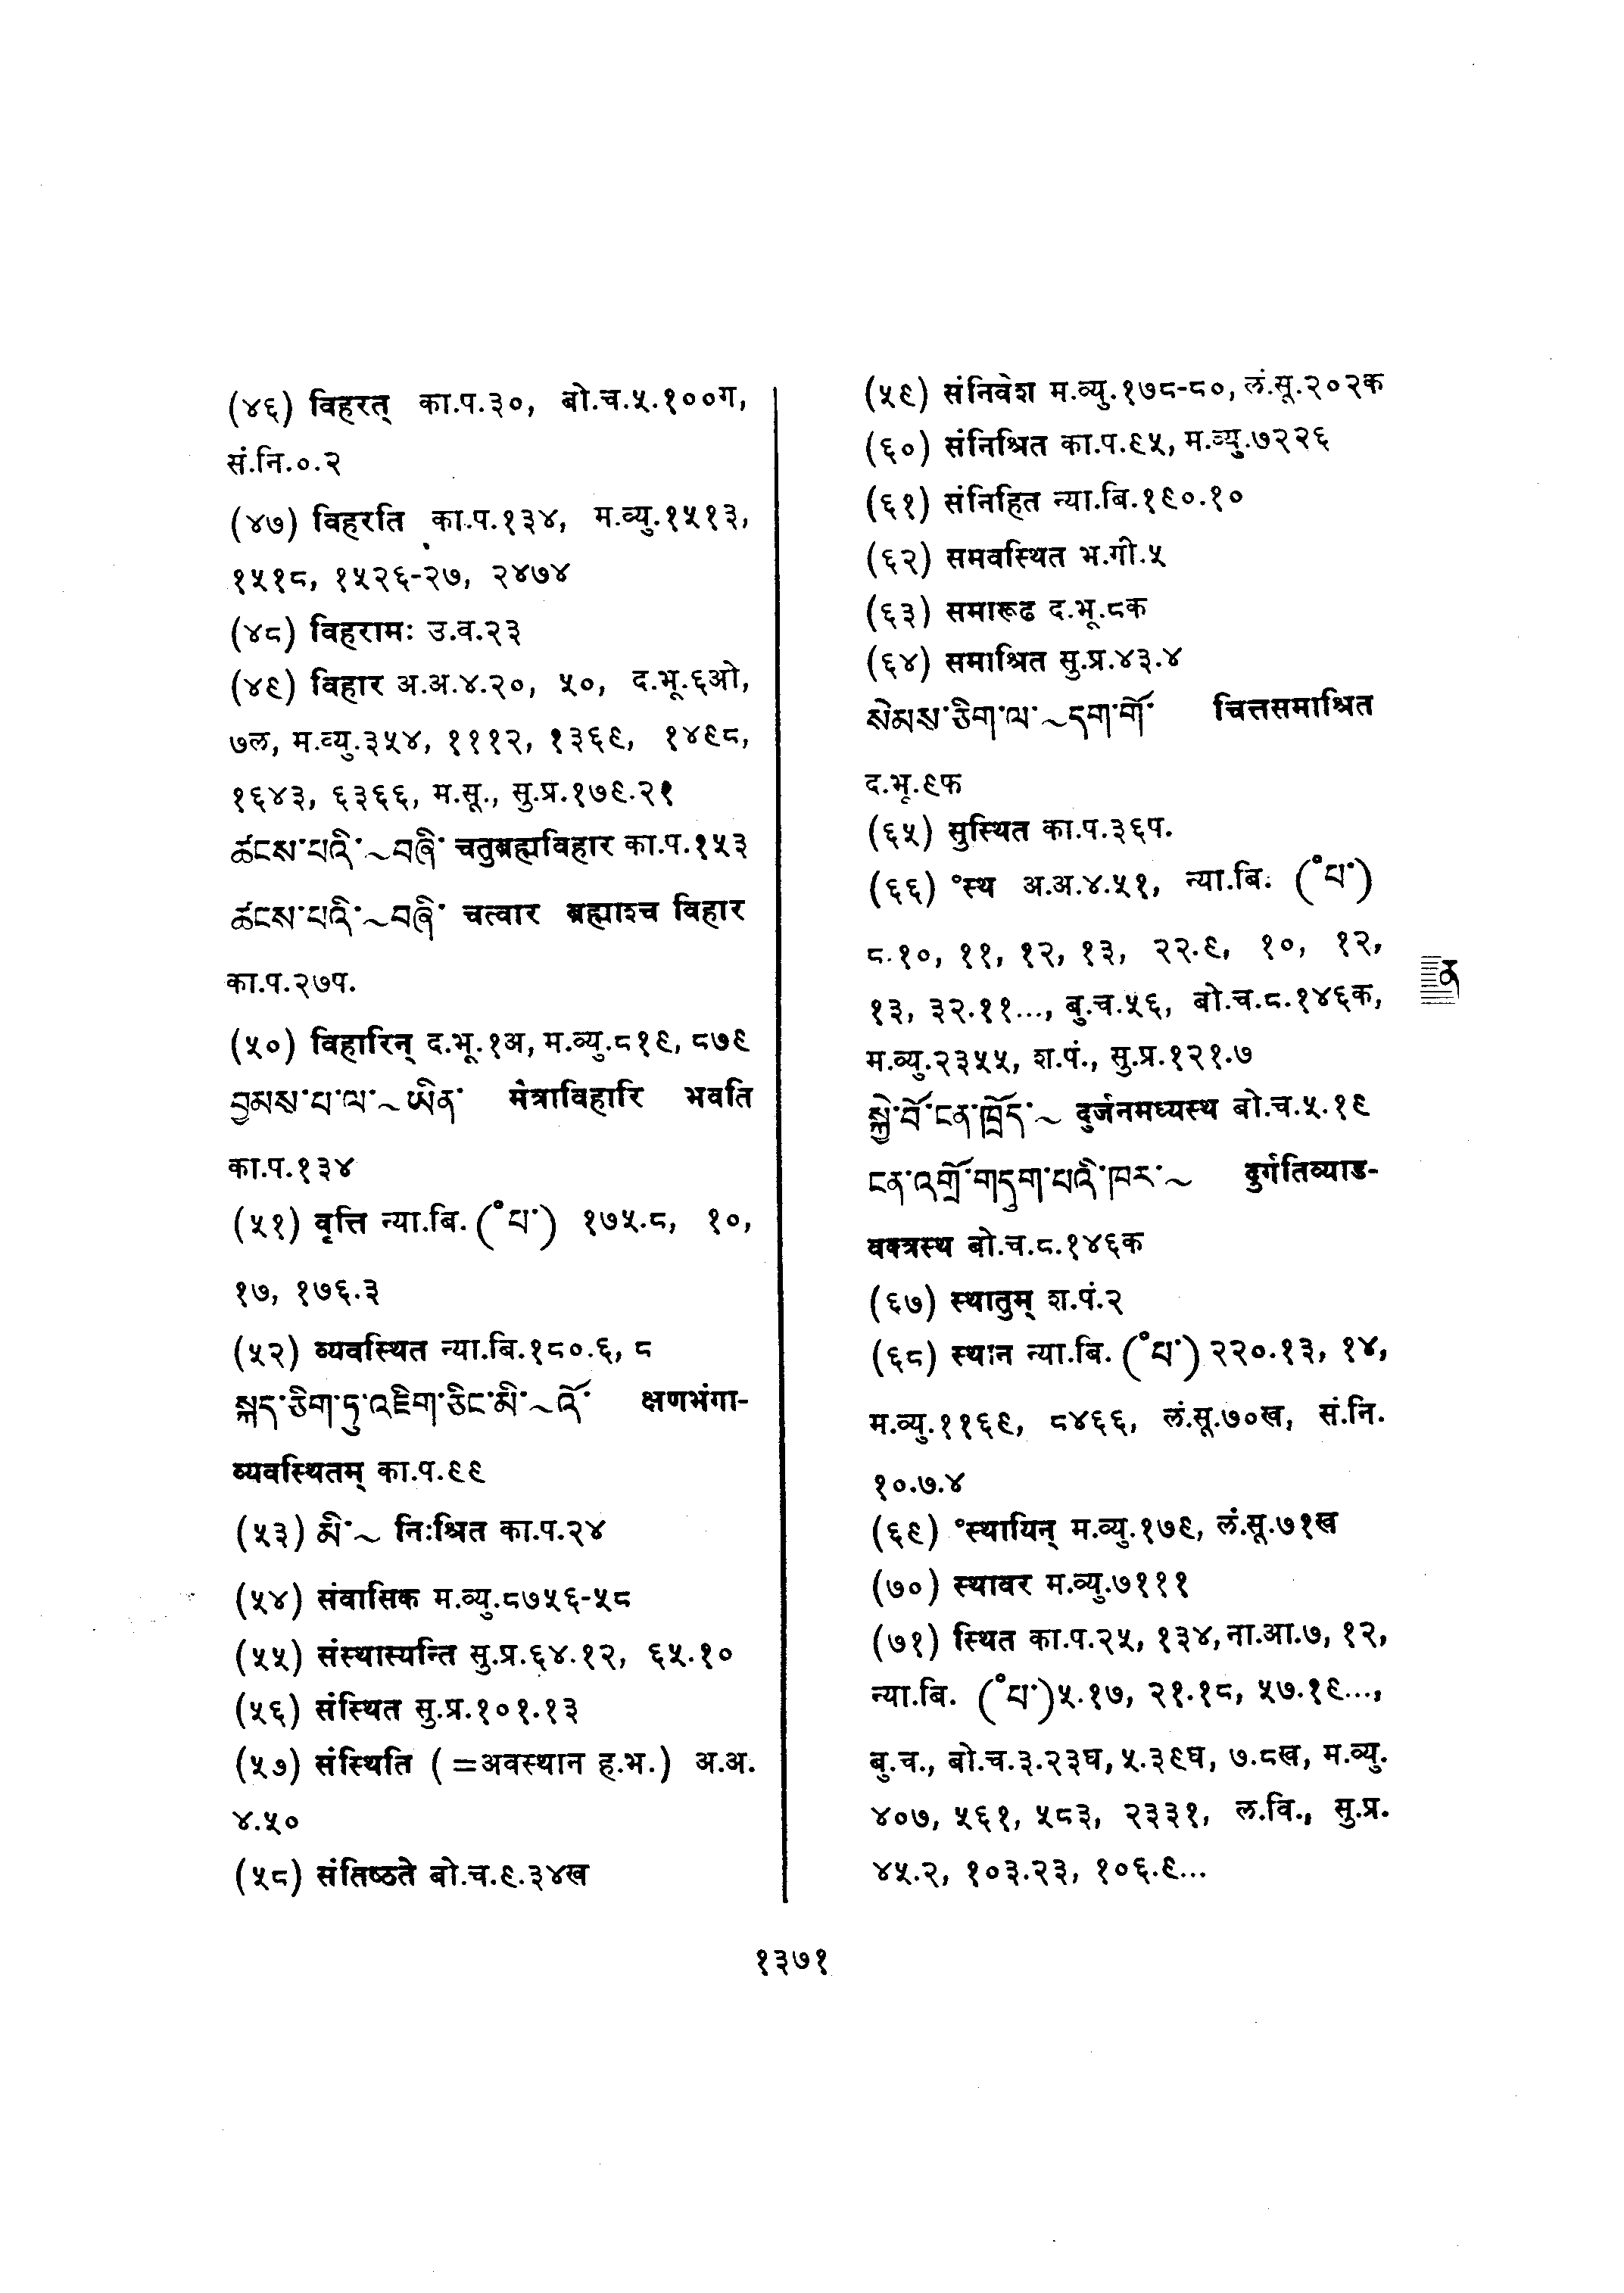 (४६) विहरत् का.प.३०, बो.च.५.१००ग,
सं.नि.०.२
(४७) विहरति का.प.१३४, म.व्यु.१५१३,
१५१८, १५२६-२७, २४७४
(४८) विहरामः उ.व.२३
(४९) विहार अ.अ.४.२०, ५०, द.भू.६ओ,
७ल, म.व्यु.३५४, १११२, १३६९, १४९८,
१६४३, ६३६६, म.सू., सु.प्र.१७९.२१
ཚངས་པའི་~བཞི་ चतुब्रह्मविहार का.प.१५३
ཚངས་པའི་~བཞི་ चत्वार ब्रह्माश्च विहार
का.प.२७प.
(५०) विहारिन् द.भू.१अ, म.व्यु.८१९, ८७९
བྱམས་པ་ལ་~ཡིན་ मंत्राविहारि भवति
का.प.१३४
(५१) वृत्ति न्या.बि.(°པ་) १७५.८, १०,
१७, १७६.३
(५२) व्यवस्थित न्या.बि.१८०.६, ८
སྐད་ཅིག་ཏུ་འཇིག་ཅིང་མི་~འོ་ क्षणभंगा-
व्यवस्थितम् का.प.९९
(५३) མི་~ निःश्रित का.प.२४
(५४) संवासिक म.व्यु.८७५६-५८
(५५) संस्थास्यन्ति सु.प्र.६४.१२, ६५.१०
(५६) संस्थित सु.प्र.१०१.१३
(५७) संस्थिति (=अवस्थान ह.भ.) अ.अ.
४.५०
(५८) संतिष्ठते बो.च.९.३४ख
(५९) संनिवेश म.व्यु.१७८-८०, लं.सू.२०२क
(६०) संनिश्रित का.प.९५, म.व्यु.७२२६
(६१) संनिहित न्या.बि.१९०.१०
(६२) समवस्थित भ.गी.५
(६३) समारूढ द.भू.८क
(६४) समाश्रित सु.प्र.४३.४
སེམས་ཅིག་ལ་~དག་གོ་ चित्तसमाश्रित
द.भू.९फ
(६५) सुस्थित का.प.३६प.
(६६) °स्थ अ.अ.४.५१, न्या.बि. (°པ་)
८.१०, ११, १२, १३, २२.९, १०, १२,
१३, ३२.११..., बु.च.५६, बो.च.८.१४६क,
म.व्यु.२३५५, श.पं., सु.प्र.१२१.७
སྐྱེ་བོ་ངན་ཁྲོད་~ दुर्जनमध्यस्थ बो.च.५.१९
ངན་འགྲོ་གདུག་པའི་ཁར་~ दुर्गतिव्याड-
वक्त्रस्थ बो.च.८.१४६क
ན
(६७) स्थातुम् श.पं.२
(६८) स्थान न्या.बि. (°པ་) २२०.१३, १४,
म.व्यु.११६९, ८४६६, लं.सू.७०ख, सं.नि.
१०.७.४
(६९) °स्थायिन् म.व्यु.१७९, लं.सू.७१ख
(७०) स्थावर म.व्यु.७१११
(७१) स्थित का.प.२५, १३४, ना.आ.७, १२,
न्या.बि. (°པ་)५.१७, २१.१८, ५७.१९...,
बु.च., बो.च.३.२३घ, ५.३९घ, ७.८ख, म.व्यु.
४०७, ५६१, ५८३, २३३१, ल.वि., सु.प्र.
४५.२, १०३.२३, १०६.९...
१३७१